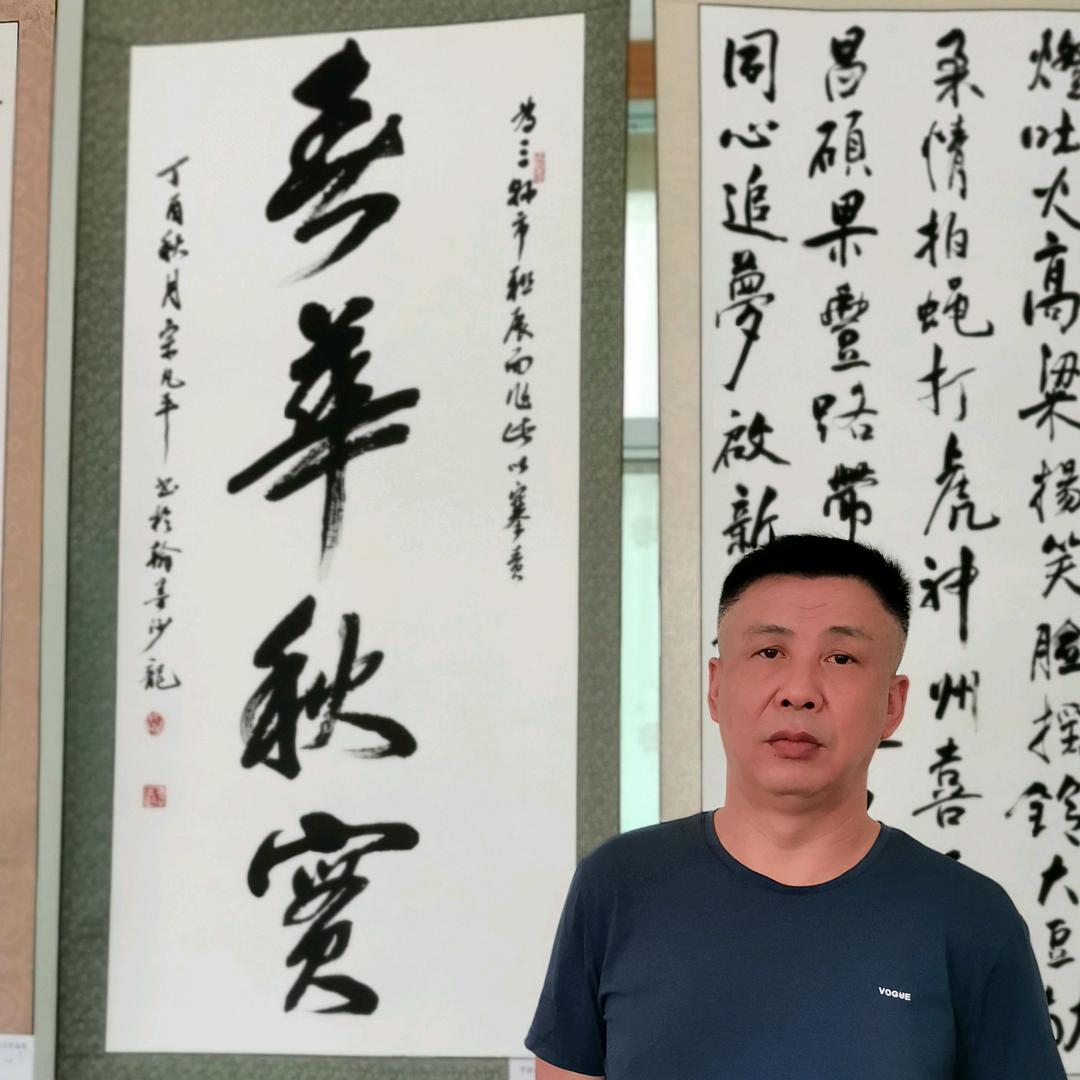 燈吐火高粱揚笑臉搖鈴大豆
柔情拍蠅打虎神州喜
昌碩果豐路帶
同心追夢啟新
為三縣市聯展而作此以塞責
春華秋實
丁酉秋月宗凡平書於翰墨沙龍
VOGUE